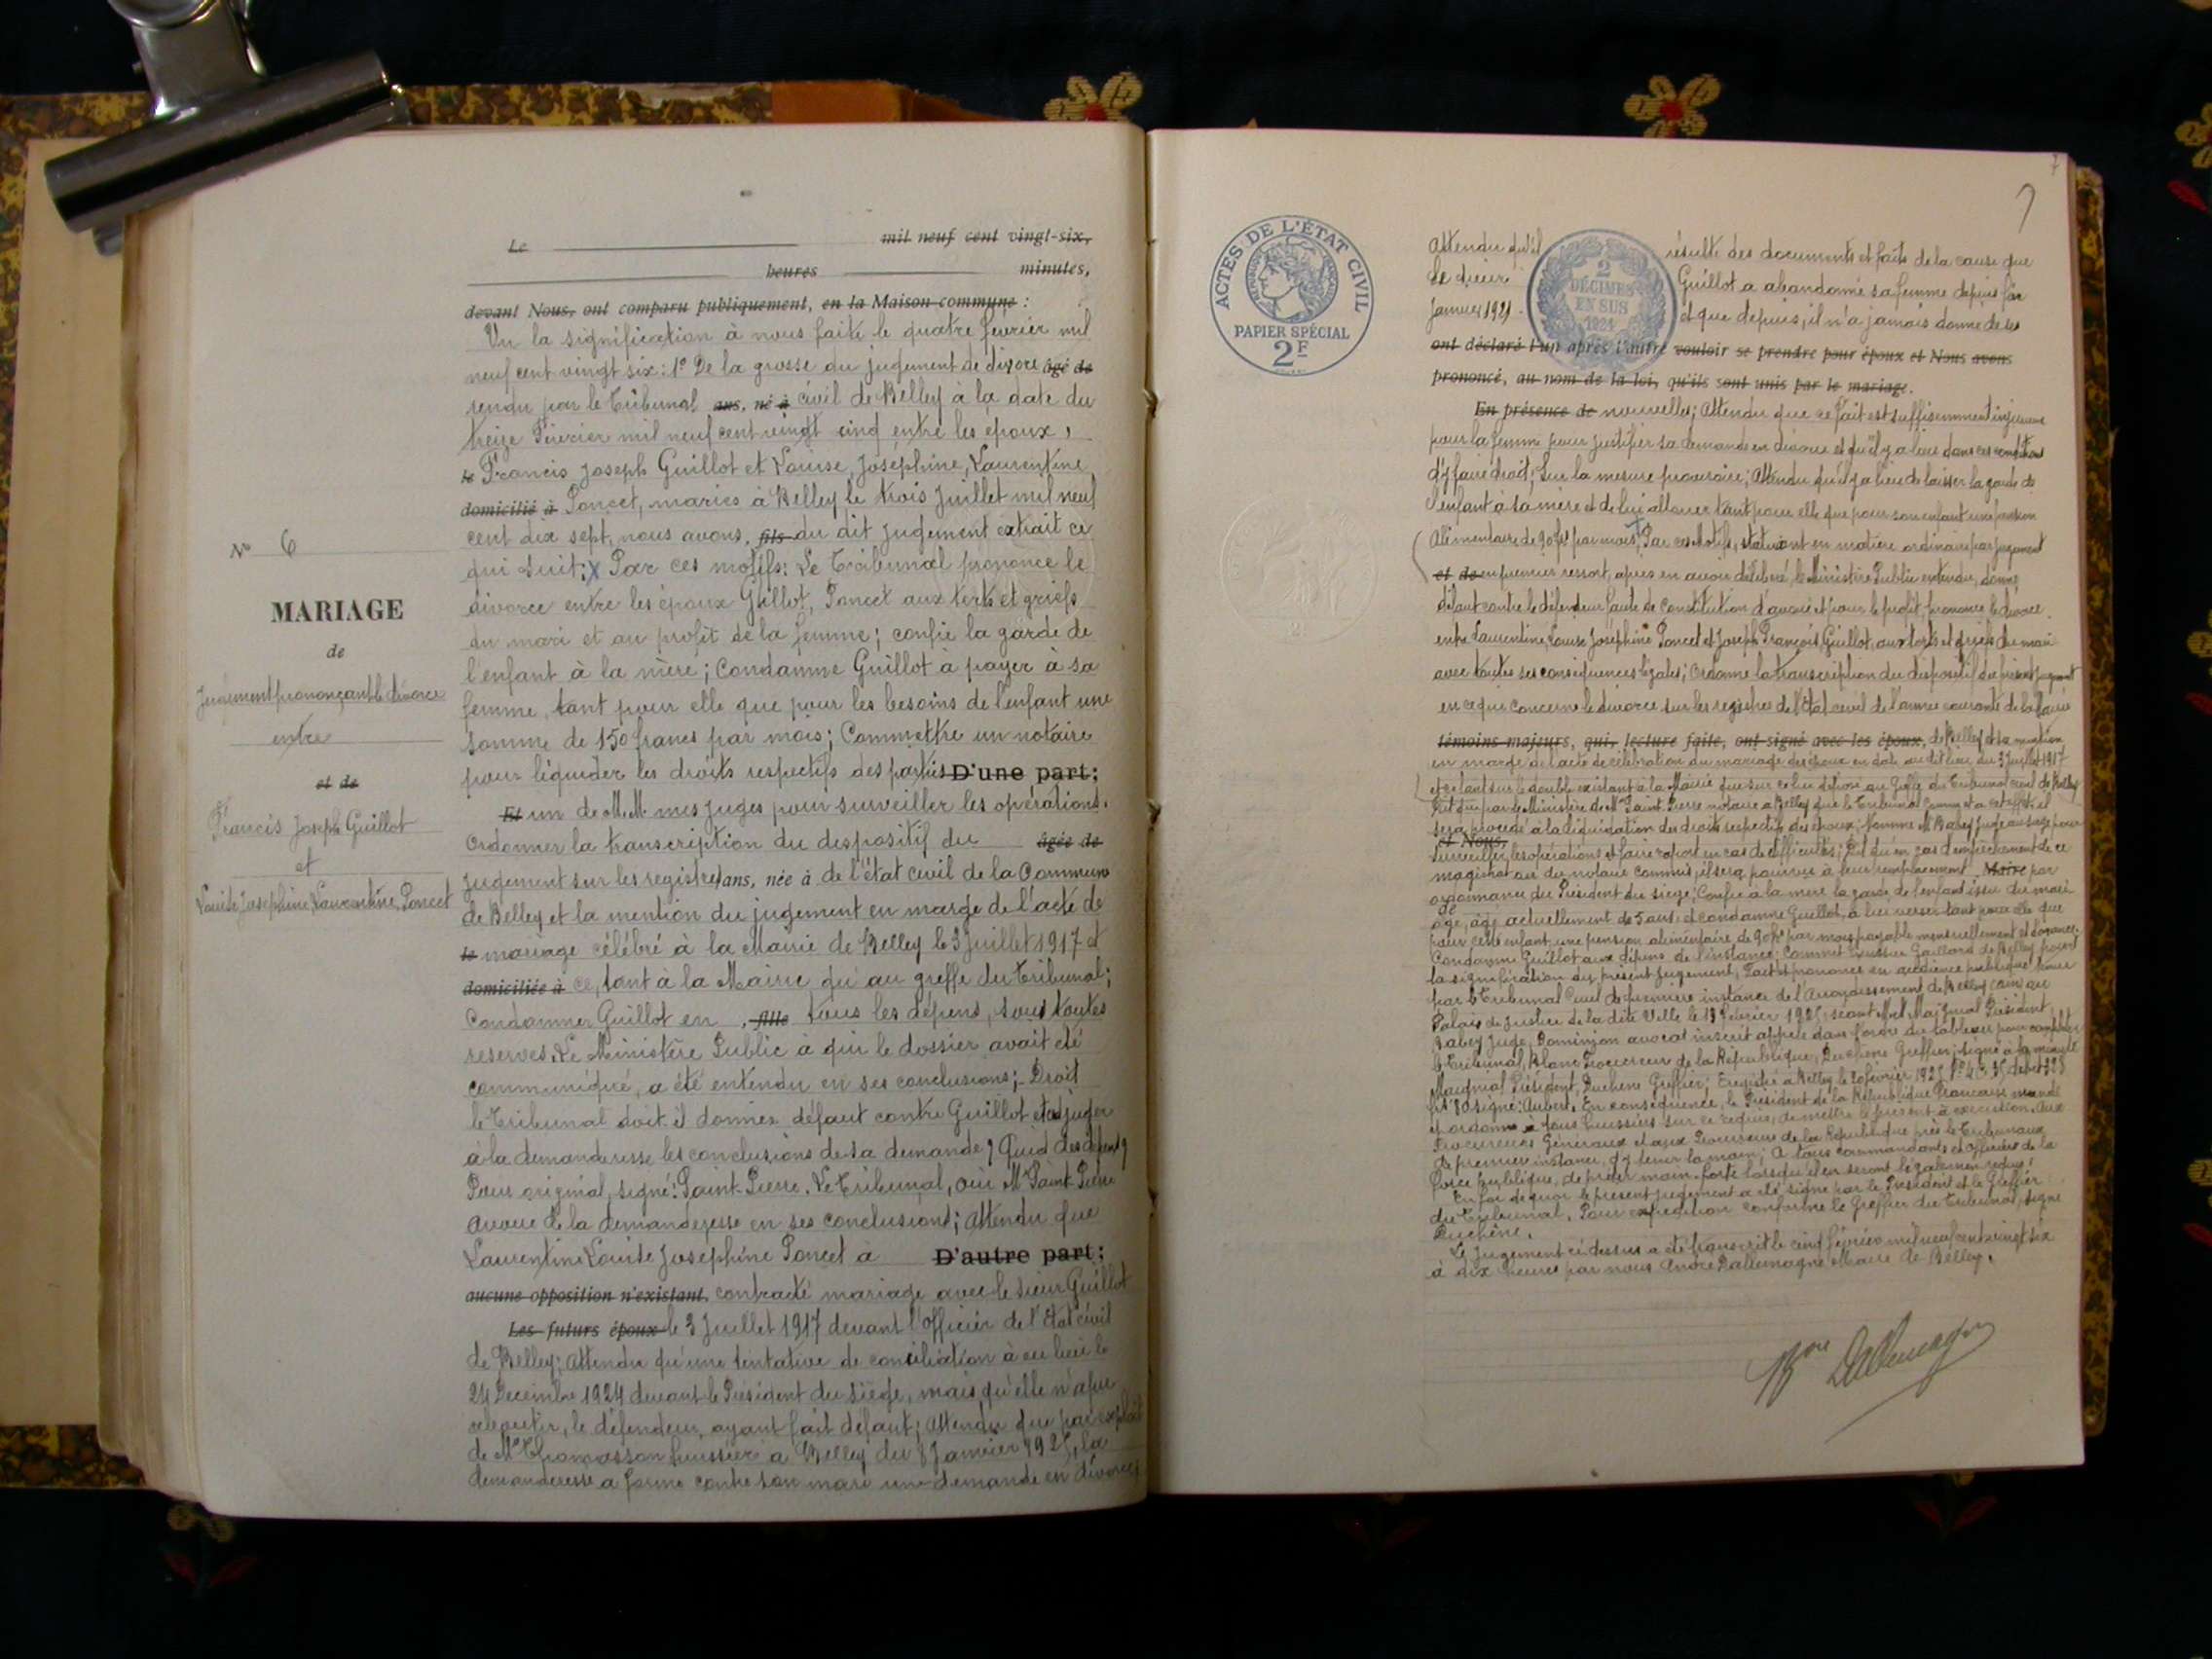 Le mil neuf cent vingt-six,
heures minutes,
devant Nous, ont comparu publiquement, en la Maison commune :
Vu la signification à nous faite le quatre février mil
neuf cent vingt six: 1° De la grosse du jugement de divorce âgé de
rendu par le Tribunal ans, né à civil de Belley à la date du
treize Février mil neuf cent vingt cinq entre les époux,
le Francis Joseph Guillot et Louise, Joséphine, Laurentine
domicilié à Poncet, mariés à Belley le trois Juillet mil neuf
cent dix sept, nous avons, fils du dit jugement extrait ce
qui suit: X Par ces motifs: Le Tribunal prononce le
divorce entre les époux Guillot, Poncet aux torts et griefs
du mari et au profit de la femme; confie la garde de
l'enfant à la mère; Condamne Guillot à payer à sa
femme, tant pour elle que pour les besoins de l'enfant une
somme de 150 francs par mois; Commettre un notaire
pour liquider les droits respectifs des parties D'une part;
Et un de M.M mes juges pour surveiller les opérations.
Ordonner la transcription du dispositif du âgée de
jugement sur les registres ans, née à de l'état civil de la Commune
de Belley et la mention du jugement en marge de l'acte de
le mariage célébré à la Mairie de Belley le 3 Juillet 1917 et
domiciliée à ce, tant à la Mairie qu'au greffe du Tribunal;
Condamner Guillot en , fille tous les dépens, sous toutes
reserves. Le Ministère Public a qui le dossier avait été
communiqué, a été entendu en ses conclusions; Droit
le Tribunal doit-il donner défaut contre Guillot et adjuger
à la demanderesse les conclusions de sa demande? Quid des dépens?
Pour original, signé: Saint-Pierre. Le Tribunal, ouï Mᵉ Saint-Pierre
avoué de la demanderesse en ses conclusions; Attendu que
Laurentine Louise Joséphine Poncet a D'autre part;
aucune opposition n'existant, contracté mariage avec le sieur Guillot
Les futurs époux le 3 Juillet 1917 devant l'officier de l'Etat civil
de Belley; Attendu qu'une tentative de conciliation a eu lieu le
24 Décembre 1924 devant le Président du siège, mais qu'elle n'a pu
le défendeur ayant fait défaut; Attendu que par exploit
de Mᵉ Thomasson huissier à Belley du 8 Janvier 1925, la
demanderesse a formé contre son mari une demande en divorce;
N° 6
MARIAGE
de
Jugement prononçant le divorce
entre
et de
Francis Joseph Guillot
et
Louise Joséphine, Laurentine Poncet
7
ACTES DE L'ÉTAT CIVIL
PAPIER SPÉCIAL
2F
2 DÉCIMES EN SUS 1921
Attendu qu'il résulte des documents et faits de la cause que
le sieur Guillot a abandonné sa femme depuis fin
Janvier 1921 et que depuis, il n'a jamais donné de ses
ont déclaré l'un après l'autre vouloir se prendre pour époux et Nous avons
prononcé, au nom de la loi, qu'ils sont unis par le mariage.
En présence de nouvelles; Attendu que ce fait est suffisamment injurieux
pour la femme pour justifier sa demande en divorce et qu'il y a lieu dans ces conditions
d'y faire droit; Sur la mesure provisoire; Attendu qu'il y a lieu de laisser la garde de
l'enfant à sa mère et de lui allouer tant pour elle que pour son enfant une pension
Alimentaire de 90frs par mois; Par ces Motifs, statuant en matière ordinaire par jugement
et de en premier ressort, après en avoir délibéré, le Ministère Public entendu, donne
défaut contre le défendeur faute de Constitution d'avoué et pour le profit, prononce le divorce
entre Laurentine Louise Joséphine Poncet et Joseph François Guillot, aux torts et griefs du mari
avec toutes ses conséquences légales; Ordonne la transcription du dispositif du présent jugement
en ce qui concerne le divorce sur les registres de l'Etat civil de l'année courante de la Mairie
témoins majeurs, qui, lecture faite, ont signé avec les époux, de Belley et la mention
en marge de l'acte de célébration du mariage des époux en date audit lieu du 3 Juillet 1917
et ce tant sur le double existant à la Mairie que sur celui déposé au Greffe du Tribunal civil de Belley
Dit que par le Ministère de Mᵉ Saint-Pierre notaire à Belley que le Tribunal commet à cet effet, il
sera procédé à la liquidation des droits respectifs des époux; Nomme Mʳ Babey Juge au siège pour
et Nous,
surveiller les opérations et faire rapport en cas de difficultés; Dit qu'en cas d'empêchement de ce
magistrat ou du notaire commis, il sera pourvu à leur remplacement Maire par
ordonnance du Président du siège; Confie à la mère la garde de l'enfant issu du mari
de
âge, âgé actuellement de 5 ans; et condamne Guillot, à lui verser tant pour elle que
pour cette enfant, une pension alimentaire de 90frs par mois payable mensuellement et d'avance.
Condamne Guillot aux dépens de l'instance; Commet huissier Gaillard de Belley pour
la signification du présent jugement; Fait et prononcé en audience publique tenue
par le Tribunal Civil de première instance de l'Arrondissement de Belley (Ain) au
Palais de Justice de la dite Ville le 13 Février 1925, séant M.M. Maignial Président
Babey Juge, Dominjon avocat inscrit appelé dans l'ordre du tableau pour compléter
le Tribunal, Blanc Procureur de la République, Duchêne Greffier; signé à la minute
Maignial Président, Duchêne Greffier; Enregistré à Belley le 20 février 1925
signé: Aubert. En conséquence, le Président de la République Française mande
et ordonne à tous huissiers sur ce requis, de mettre le présent à exécution. Aux
Procureurs Généraux et aux Procureurs de la République près les Tribunaux
de première instance, d'y tenir la main; A tous commandants et officiers de la
force publique, de prêter main-forte lorsqu'ils en seront légalement requis;
En foi de quoi le présent jugement a été signé par le Président et le Greffier
du Tribunal. Pour expédition conforme le Greffier du Tribunal, signé
Duchêne.
Le Jugement ci-dessus a été transcrit le cinq février mil neuf cent vingt six
à dix heures par nous André Dallemagne Maire de Belley.
Dallemagne